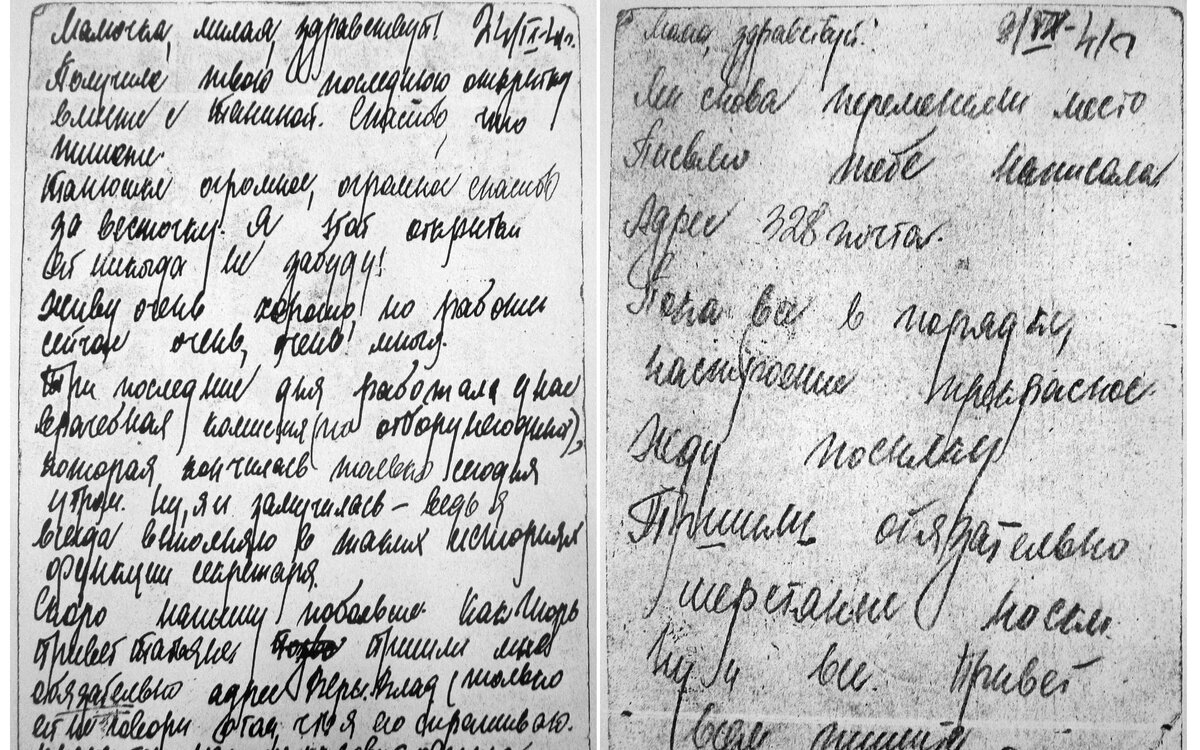 Мамочка, милая, здравствуй! 24/IX-41г.
Получила твою последнюю открытку
вместе с Таниной. Спасибо, что
пишете.
Танюшка огромное, огромное спасибо
за весточку. Я этой открытки
никогда не забуду!
Живу очень хорошо, но работы
сейчас очень, очень много.
Три последние дня работала у нас
врачебная комиссия (по отбору негодных),
которая кончилась только сегодня
утром. Ну, я и замучилась – ведь я
всегда выполняю в таких историях
функции секретаря.
Скоро напишу побольше. Как Игорь
Привет Татьяне Пришли мне
обязательно адрес Веры. Влад (только
ей не говори о том, что я его спрашиваю.
Мама, здравствуй! 2/IX-41г
Мы снова переменили место
Письмо тебе написала
Адрес 328 почта.
Пока все в порядке,
настроение прекрасное.
Жду посылку
Пришли обязательно
шерстяные носки.
Ну и все. Привет
всем пишите